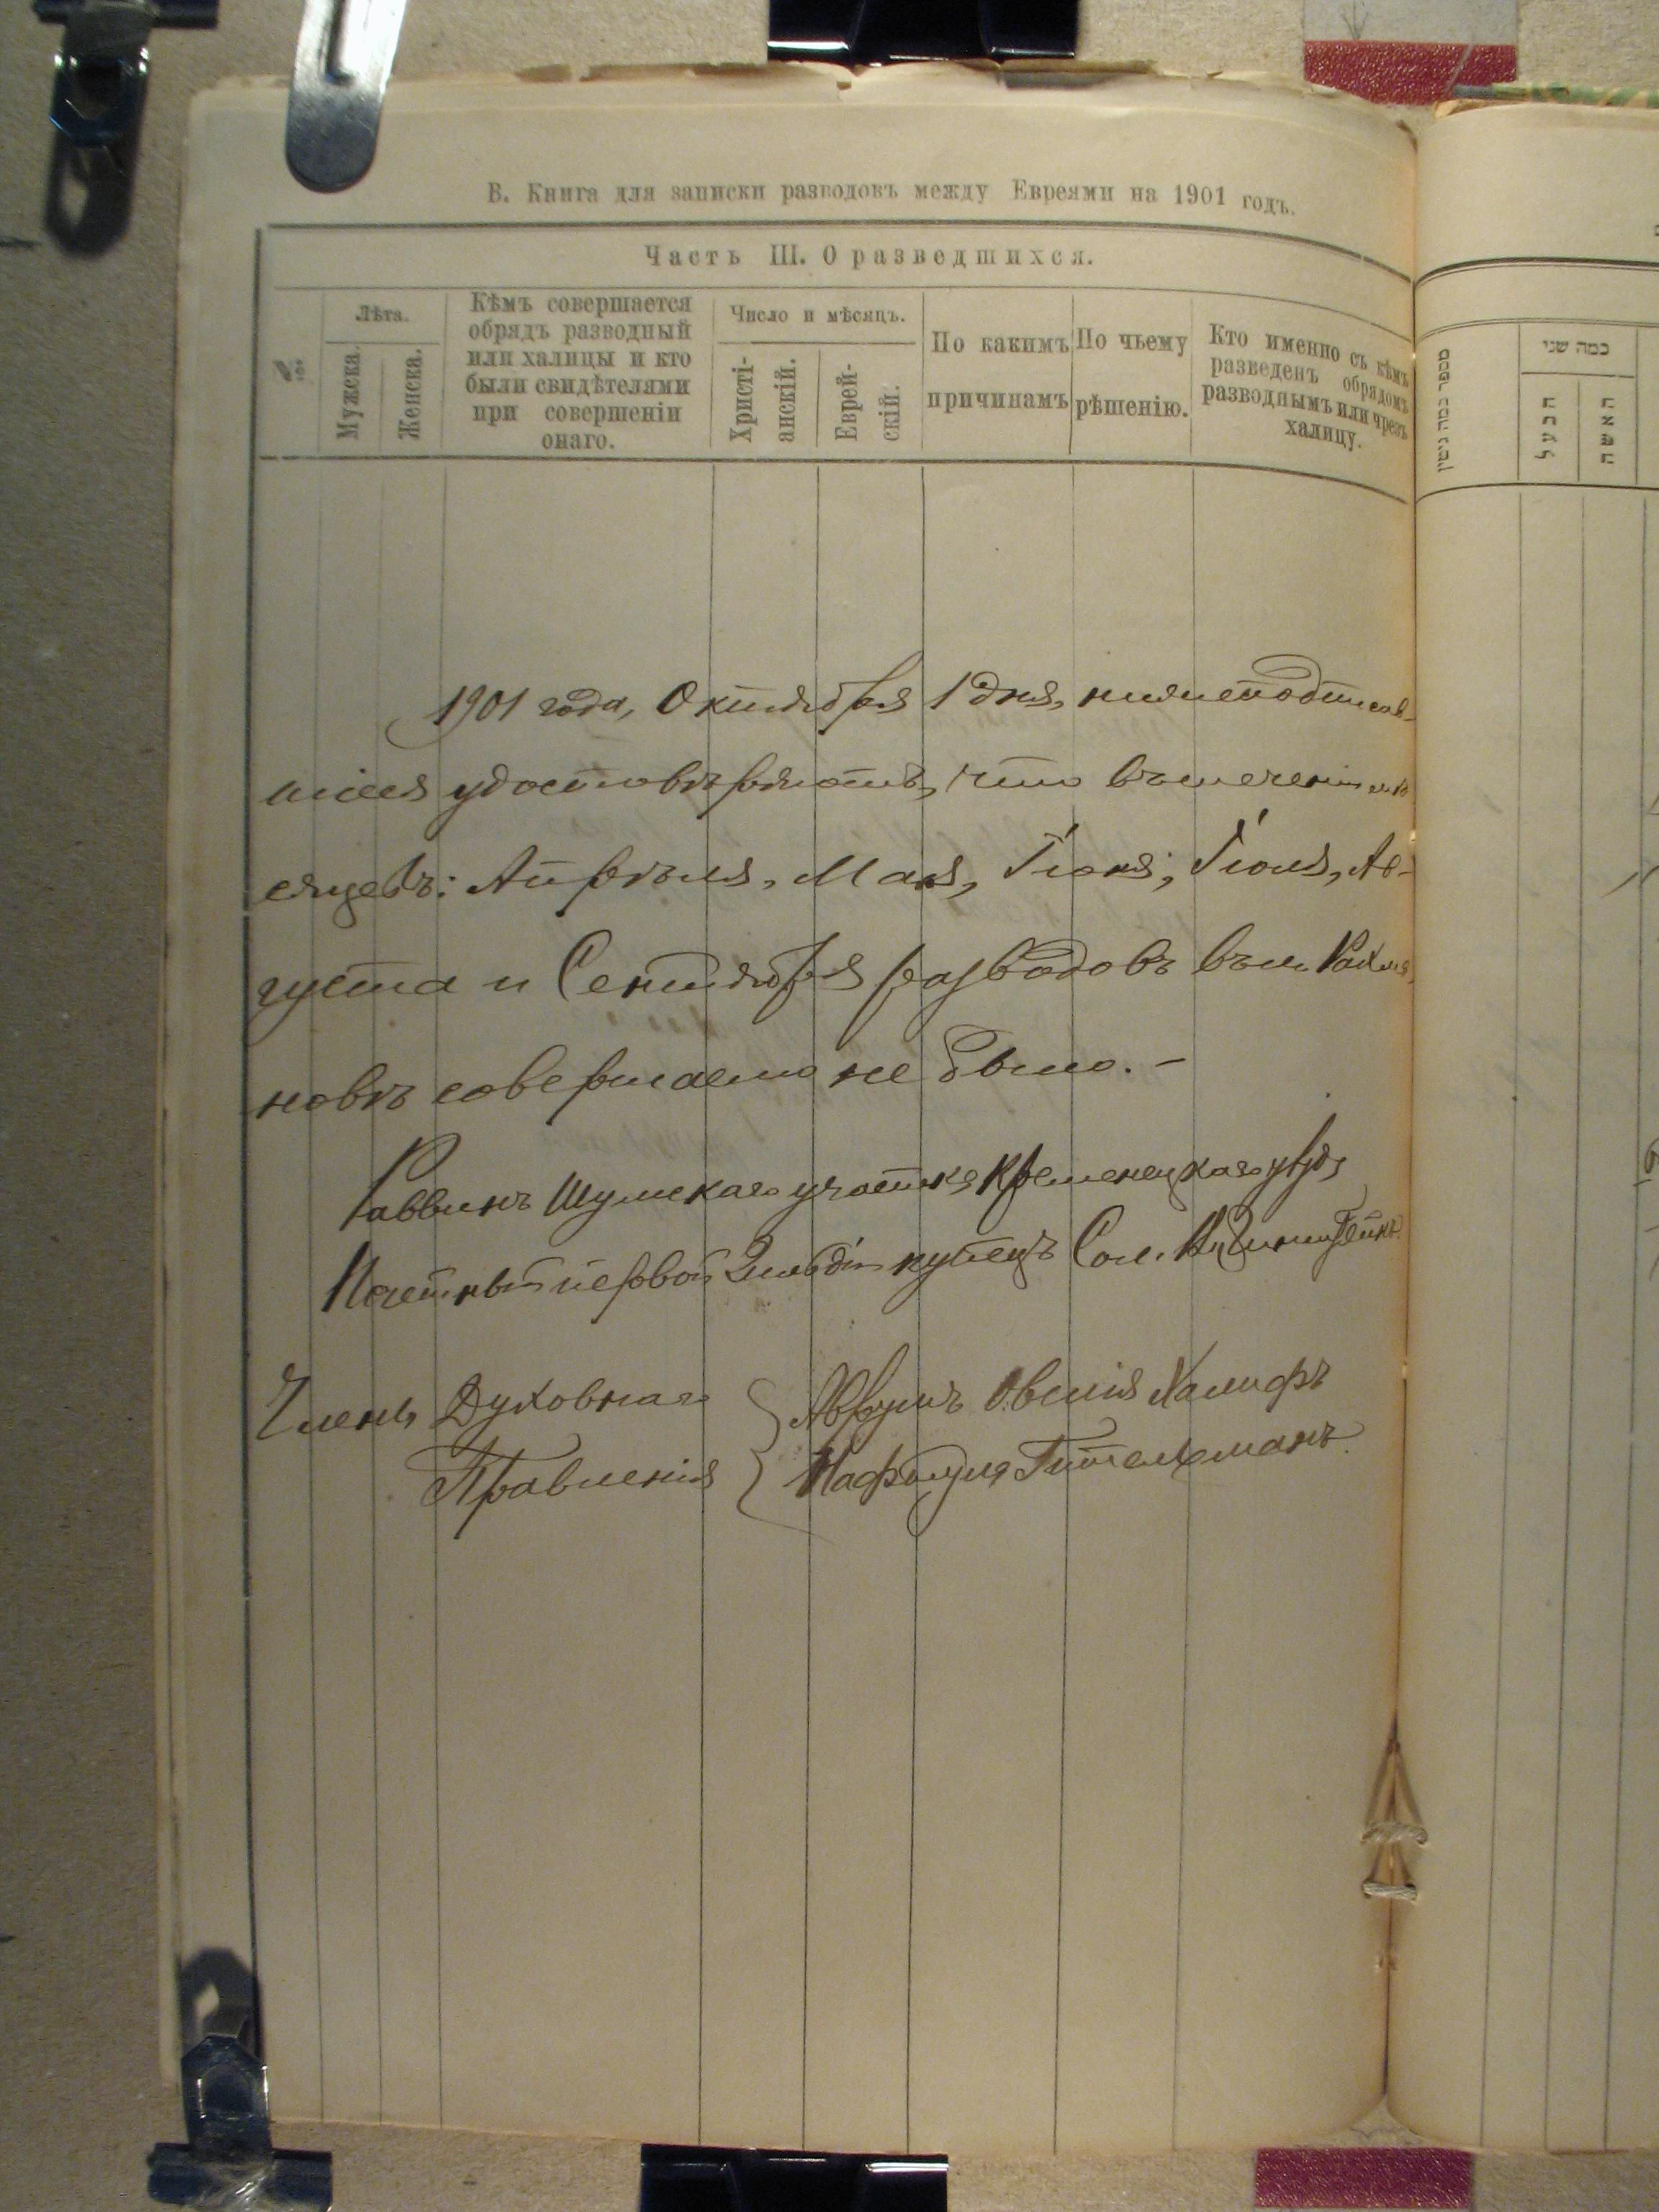 В. Книга для записки разводовъ между Евреями на 1901 годъ.
Часть III. О разведшихся.
№
Лѣта.
Мужска.
Женска.
Кѣмъ совершается
обрядъ разводный
или халицы и кто
были свидѣтелями
при совершеніи
онаго.
Число и мѣсяцъ.
Христі-
анскій.
Еврей-
скій.
По какимъ
причинамъ
По чьему
рѣшенію.
Кто именно съ кѣмъ
разведенъ обрядомъ
разводнымъ или чрезъ
халицу.
1901 года, Октября 1 дня, нижеподписав-
шіеся удостовѣряютъ, что въ теченіи мѣ
сяцевъ: Апрѣля, Мая, Іюня, Іюля, Ав-
густа и Сентября разводовъ въ м. Рахма
новѣ совершаемо не было. –
Раввинъ Шумскаго участка Кременецкаго уѣзда
Почетный первой Гильдіи купецъ Сол.
Члены Духовнаго
Правленія
Аврумъ Овшія Халифъ
Нафтула Гительманъ.
מספר כמה גיטין
כמה שני
הבעל
האשה